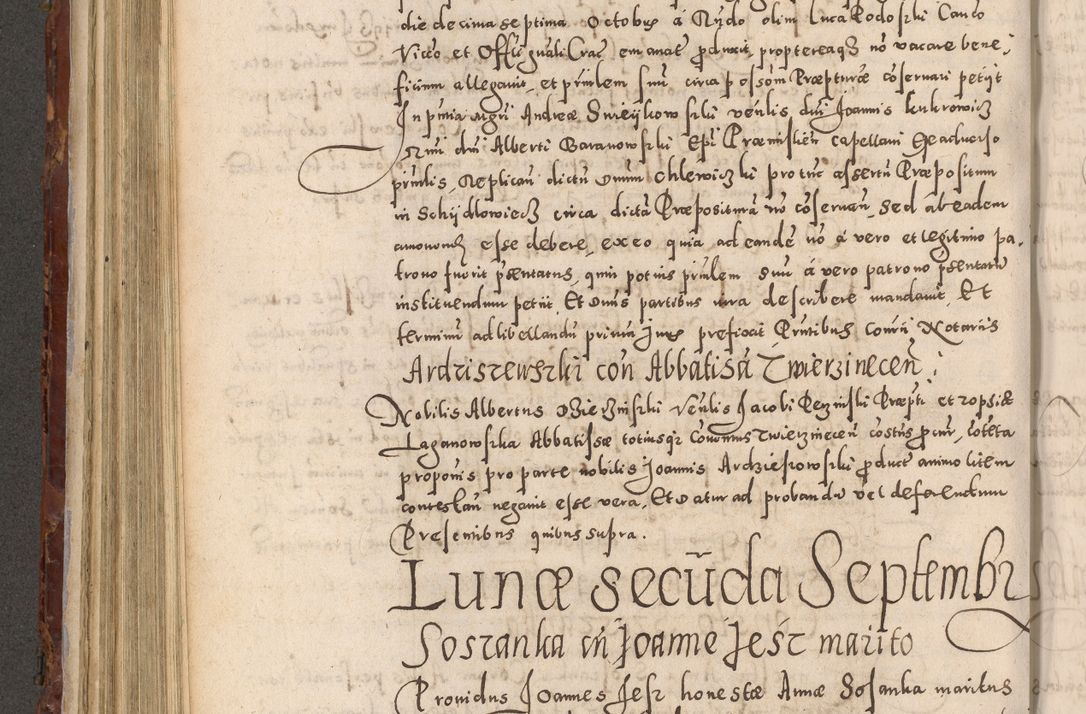 die decima septima Octobrs á Rndo olim Luca Kodoski Canco
Vicco et Offli gnali Crac emanat produxit, proptereaq3 nō vacare bene
ficium allegavit, et prinlem suū circa possōm Præpturæ cōservari petijt
In pntia mgri Andreæ Swieijkowski venlis dni Joannis Kukrowicz
Rmi dni Alberti Baranowski Epi Præmislien capellani Ex adverso
prinlis, Replicań dictū dnum Chlewiczki pro tūc assertū Præpositum
in Schijdlowiecz circa dictā Præpositurā nō cōservań, sed ab eadem
amovend esse debere, ex eo quia ad eandē nō á vero et legitimo pa,
trono fuerit psentatus, quin potius prinlem suū á vero patrono psentatū
instituendum petiit, Et dnus partibus iura describere mandavit, Et
terminū ad libellandū primū Jur præfixit Pntibus Coram Notariis
Ardziszewszki con Abbatisā Zwierzinecen
Nobilis Albertus Wierzinski Venlis Jacobi Perzinski Præpti et zophiæ
Laganowska Abbatissæ totiusqz Conventus Zwierzinecen costūs procur, cōtēta
proponis pro parte nobilis Joannis Ardzieszowski product animo litem
contestań negavit esse vera, Et datur ad probandū vel deferendum
Presentibus quibus supra.
Lunæ secūda Septembr
Soszanka cū Joanne Jesz marito
Providus Joannes Jesz honestæ Annæ Sosanka maritus